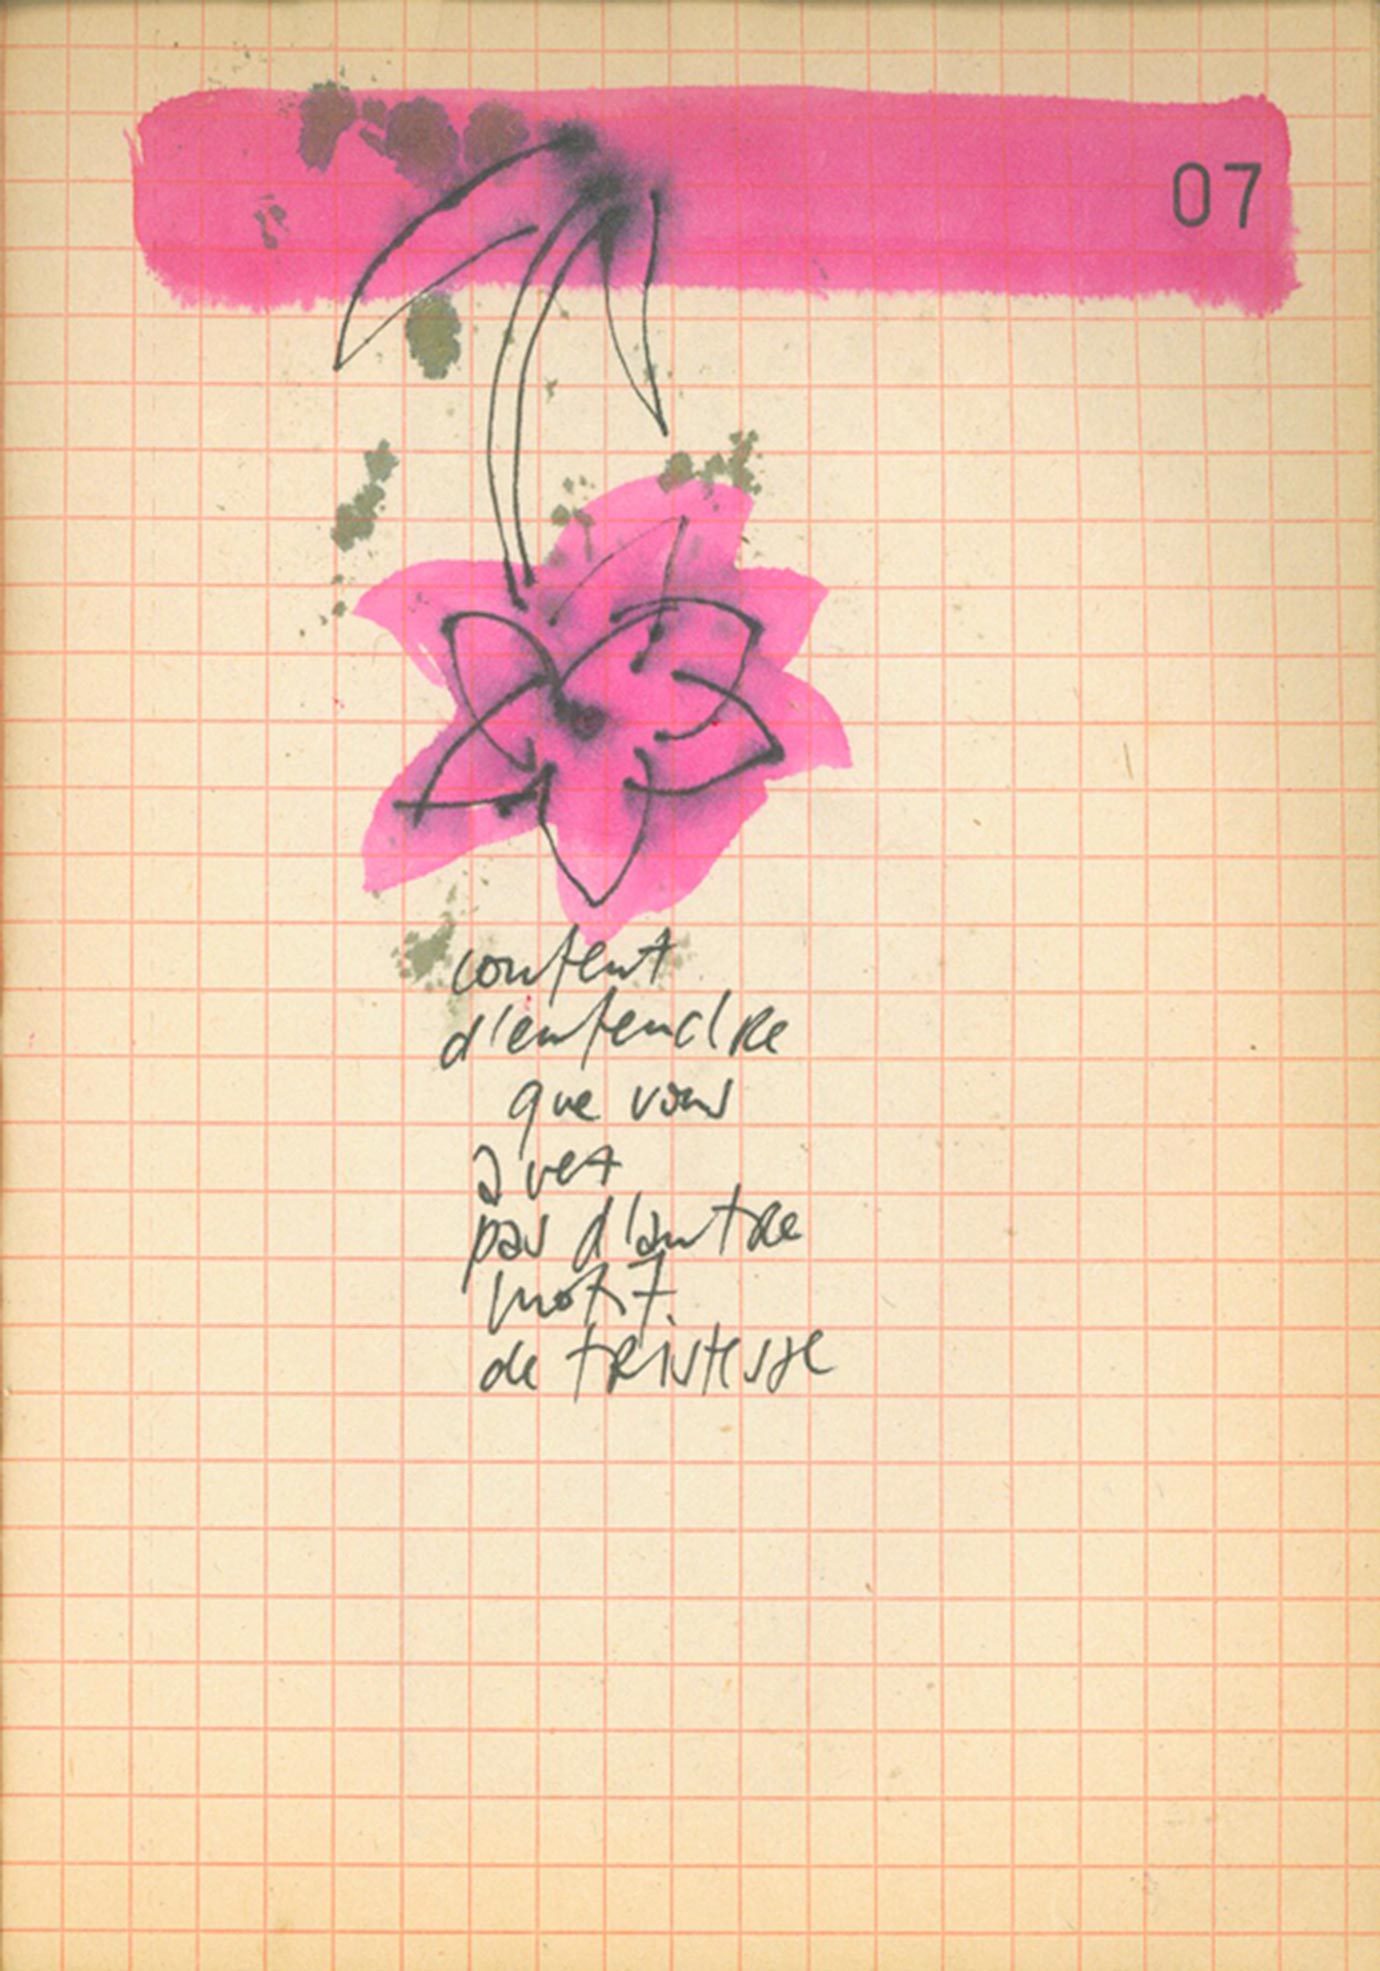 07
content
d'entendre
que vous
avez
pas d'autre
motif
de tristesse